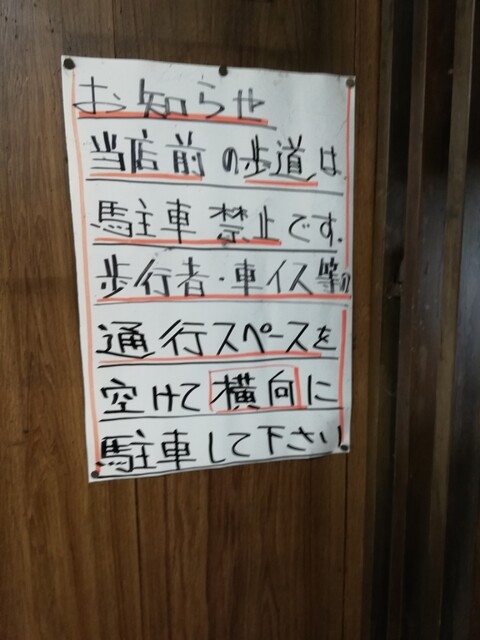 お知らせ
当店前の歩道は
駐車禁止です.
歩行者・車イス等の
通行スペースを
空けて横向に
駐車して下さい